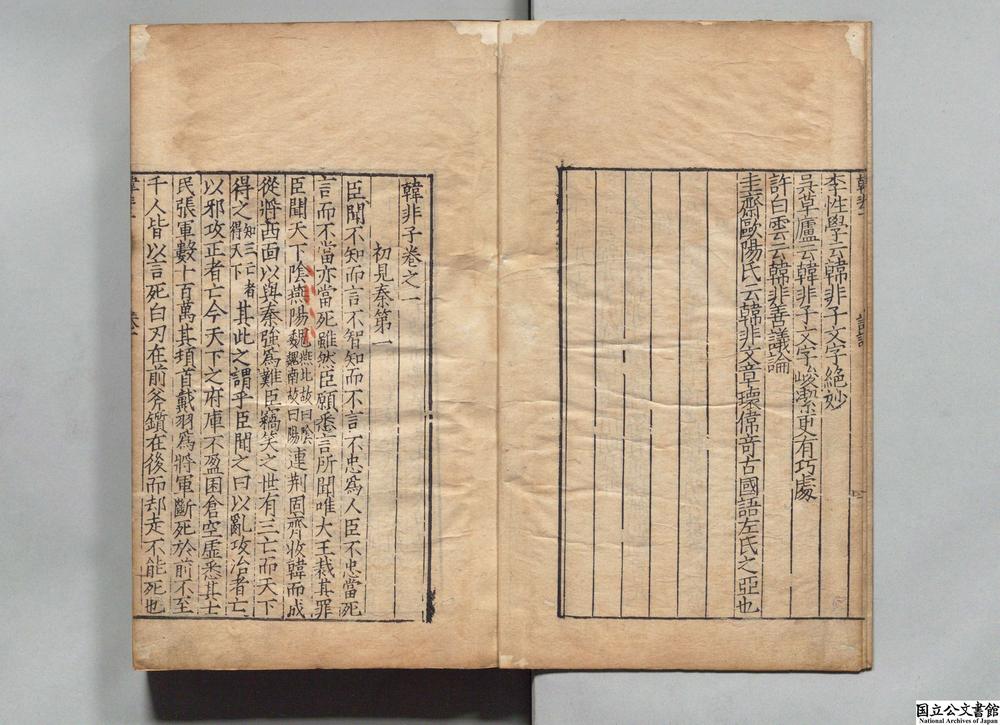 李性學云韓非子文字絕妙
吳草廬云韓非子文字峻潔更有巧處
許白雲云韓非善議論
圭齋歐陽氏云韓非文章瓌偉奇古國語左氏之亞也
韓非子卷之一
初見秦第一
臣聞不知而言不智知而不言不忠爲人臣不忠當死
言而不當亦當死雖然臣願悉言所聞唯大王裁其罪
臣聞天下陰燕陽魏燕北故曰陰魏南故曰陽連荆固齊收韓而成
從將西面以與秦強爲難臣竊笑之世有三亡而天下
得之知三亡者得天下其此之謂乎臣聞之曰以亂攻治者亡
以邪攻正者亡今天下之府庫不盈囷倉空虛悉其士
民張軍數十百萬其頓首戴羽爲將軍斷死於前不至
千人皆以言死白刃在前斧鑕在後而却走不能死也
国立公文書館
National Archives of Japan